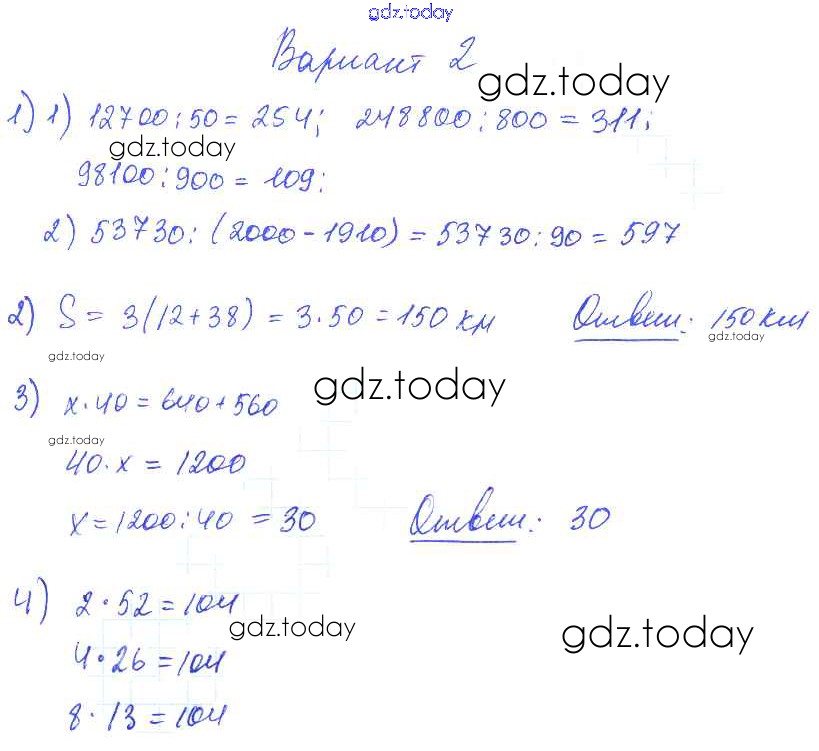 gdz.today
Вариант 2
gdz.today
1) 1) 12700:50 = 254; 248800:800 = 311;
gdz.today
98100:900 = 109;
2) 53730:(2000-1910) = 53730:90 = 597
2) S = 3(12+38) = 3·50 = 150 км Ответ: 150 км
gdz.today gdz.today
3) x·40 = 640+560
gdz.today
gdz.today
40·x = 1200
x = 1200:40 = 30 Ответ: 30
4) 2·52 = 104
gdz.today gdz.today
4·26 = 104
8·13 = 104